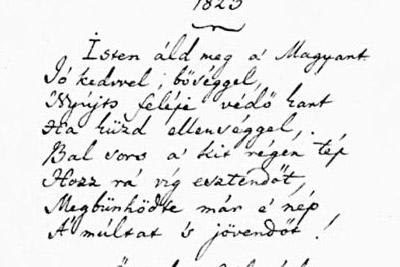 1823
Isten áld meg a' Magyart
Jó kedvvel, bőséggel,
Nyújts feléje védő kart
Ha küzd ellenséggel,
Bal sors a' kit régen tép
Hozz rá víg esztendőt,
Megbünhödte már e' nép
A' múltat 's jövendőt!